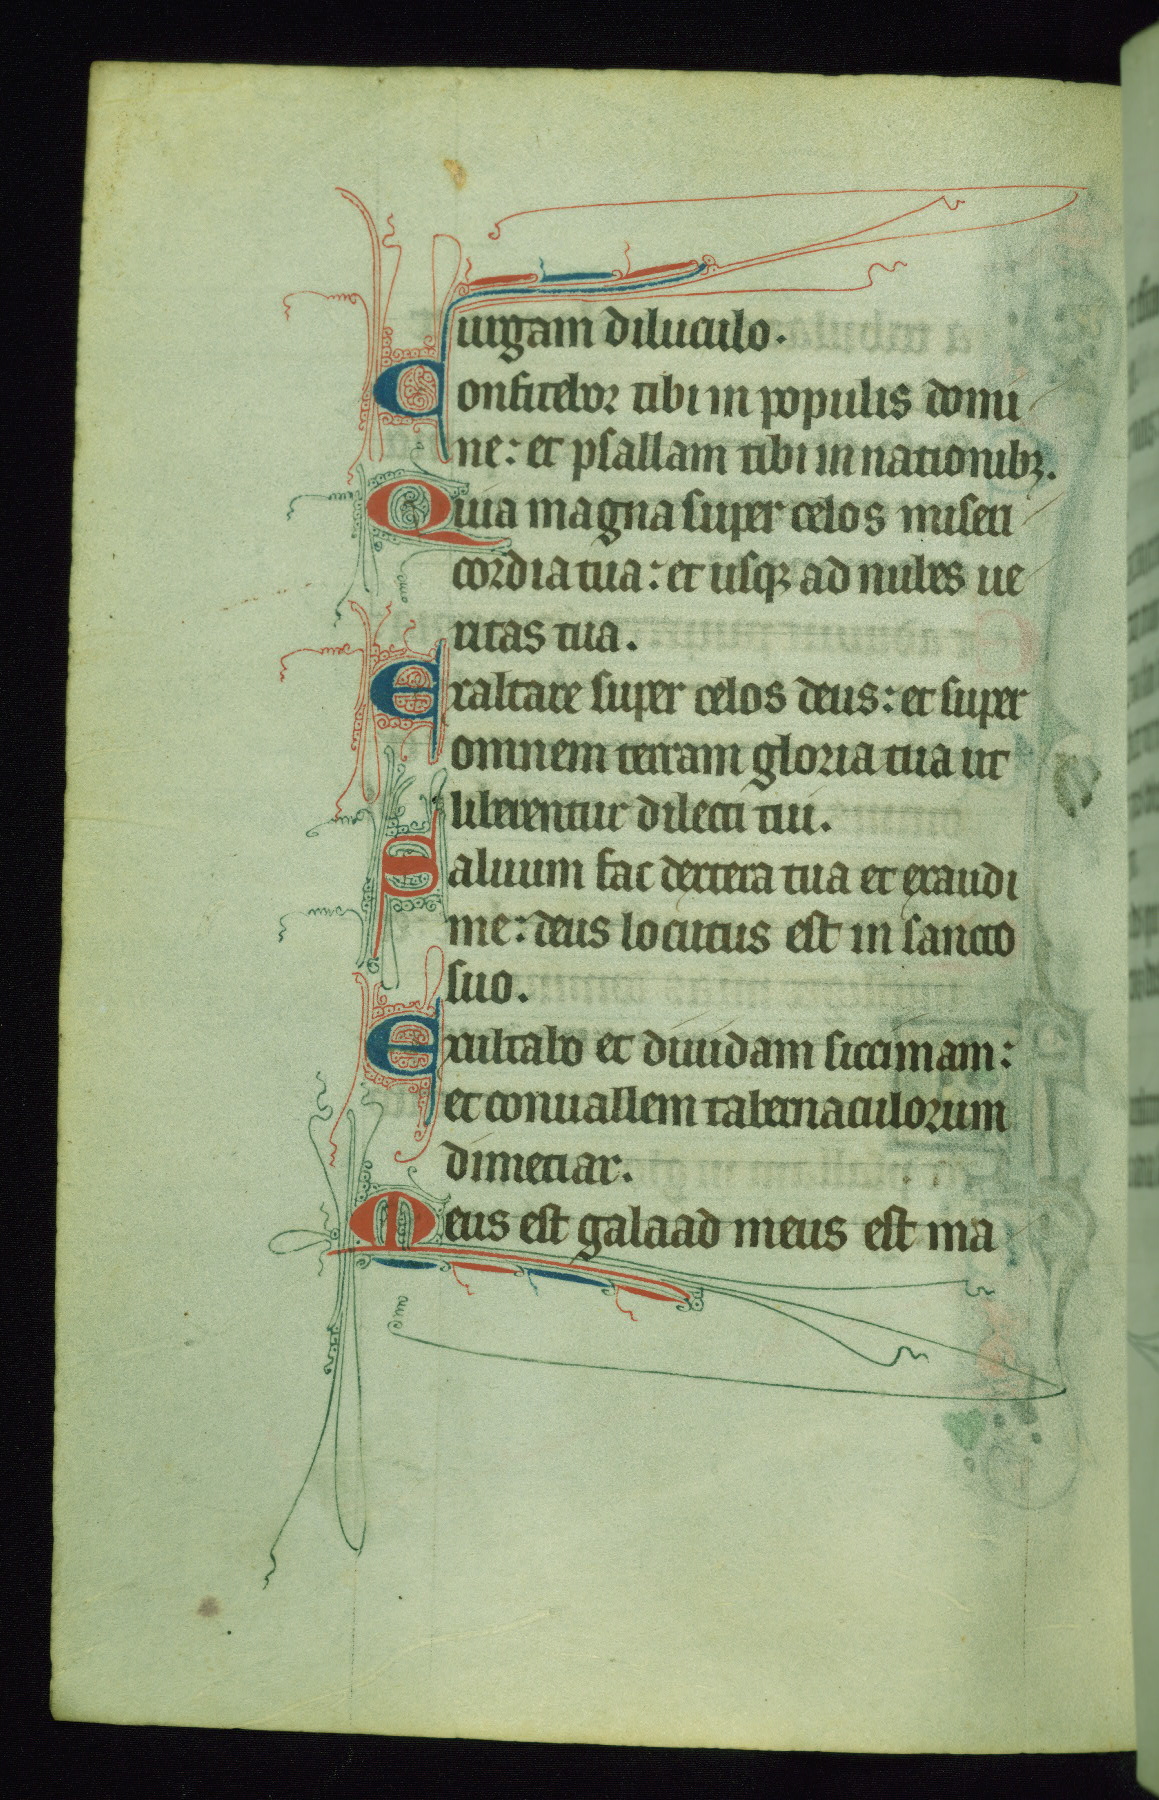 uirgam diluculo.
Confitebor tibi in populis domi
ne: et psallam tibi in nationibꝫ.
Quia magna super celos miseri
cordia tua: et usqꝫ ad nubes ue
ritas tua.
Exaltare super celos deus: et super
omnem terram gloria tua ut
liberentur dilecti tui.
Saluum fac dextera tua et exaudi
me: deus locutus est in sancto
suo.
Exultabo et diuidam siccimam:
et conuallem tabernaculorum
dimetiar.
Meus est galaad meus est ma